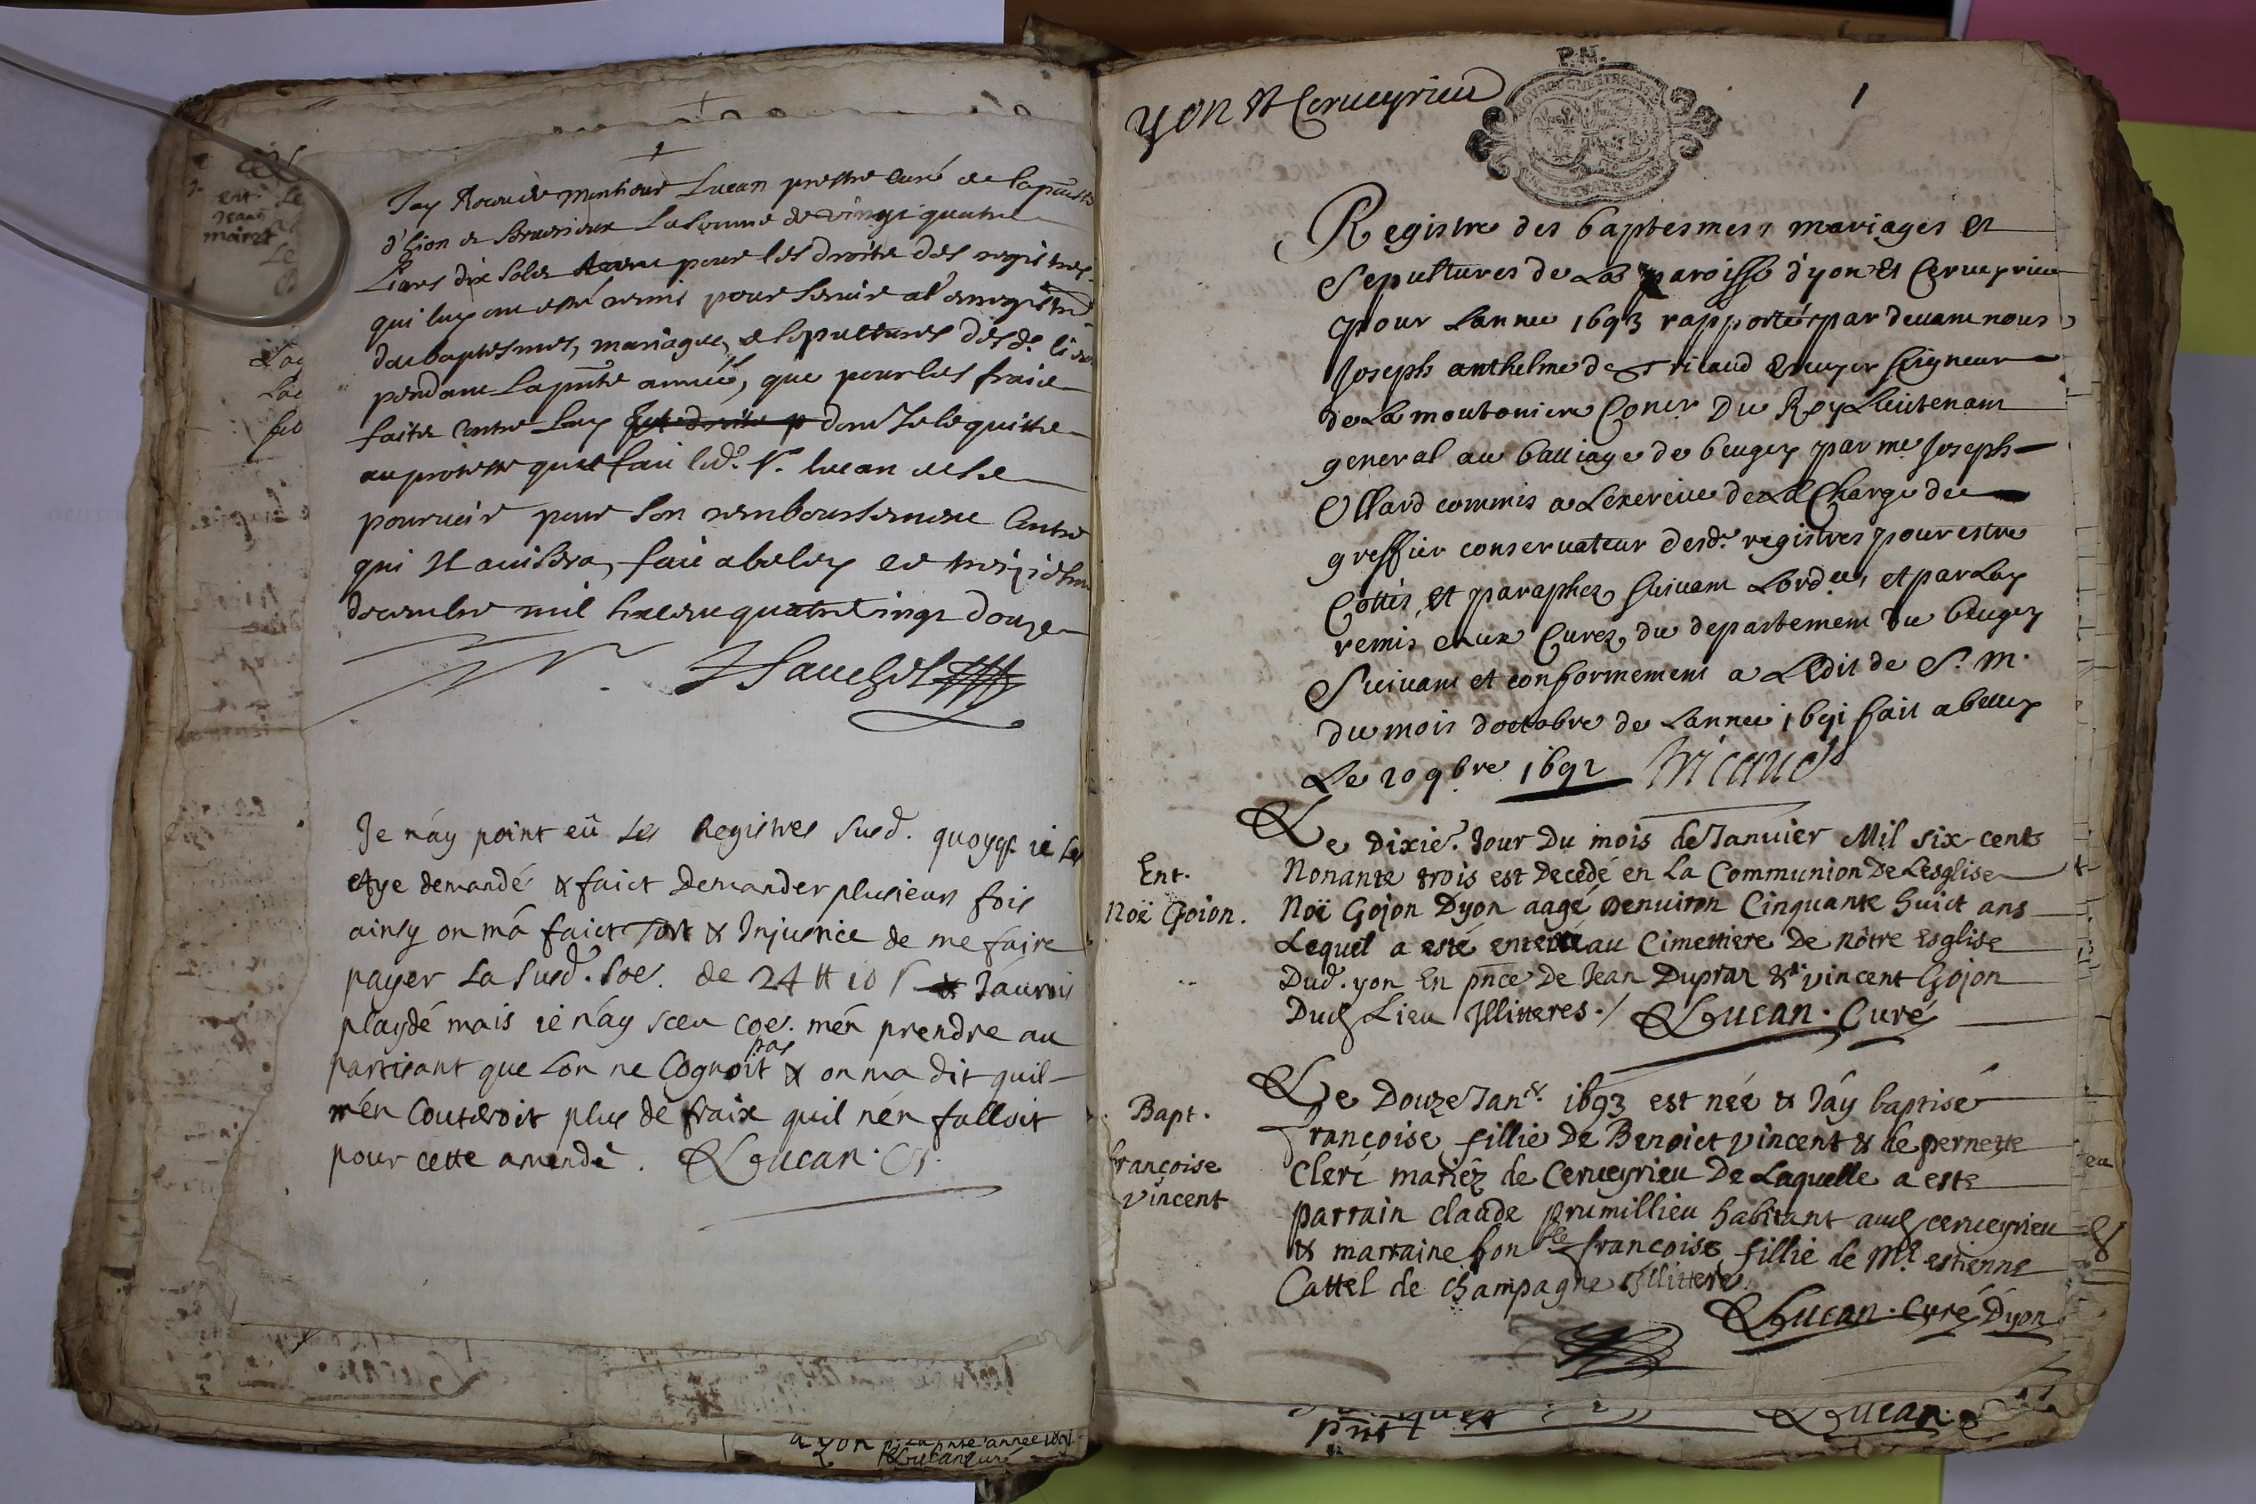 Jay Receu de Monsieur Lucan prestre curé de la pnte
d'hion et Seruerieux La somme de vingt quatre
Liures dix sols pour les droits des registres
qui luy ont esté remis pour seruir a l'enregistre
de baptesmes, mariages, et sepultures desd. lieux
pendant la pnte année, que pour les frais
faits contre Luy dont Je le quitte
au proteste que fait led. Sr. lucan de se
pouruoir pour son remboursement Contre
qui Il auisera, fait a beley ce treizieme
decembre mil six cent quatre vingt douze
Je n'ay point eû Les Registres susd. quoyq. ie Les
aye demandé & faict Demander plusieurs fois
ainsy on m'a faict Tort & Injustice de me faire
payer La susd. soe. de 24 tt 10 s & J'aurois
playdé mais ie n'ay sceu coe. m'en prendre au
partisant que Lon ne Cognoit pas & on ma dit quil
m'en Couteroit plus de fraix quil n'en falloit
pour cette amende. Lucan. Cr.
a yon pnte année 1691
Lucan curé
ent.
Jean
maret
P.N.
yon et Cerueyrieu
1
Registre des baptesmes, mariages et
Sepultures de La paroisse d'yon et Cerueyrieu
pour Lannee 1693 rapportés par deuant nous
Joseph anthelme de Tricaud Escuyer Seigneur
de La moutoniere Coner Du Roy Lieutenant
general au balliage de beugey par me Joseph
Ollard commis a Lexercice de La Charge de
greffier conseruateur desd. registres pour estre
Cottés, et paraphez suiuant Lord.ce, et par Luy
remis aux Curez, du departement du beugey
Suiuant et conformement a L'edit de S. M.
du mois doctobre de Lannee 1691 fait a belley
Le 20 9bre 1692 Tricaud
Le Dixie. Jour Du mois de Januier Mil six cents
Ent. Nonante trois est Decedé en La Communion De Lesglise
Noë Gojon. Noë Gojon D'yon aagé Denuiron Cinquante huict ans
Lequel a esté enterré au Cimettiere De nôtre Esglise
Dud. yon En pnce De Jean Duprat & vincent Gojon
Dud Lieu Illitteres./ Lucan. Curé
Le Douze Janr. 1693 est née & J'ay baptisé
Bapt. Françoise fillie De Benoict vincent & de pernette
françoise Clerc mariéz de Cerueyrieu De Laquelle a esté
vincent parrain claude prumillieu habitant aud cerueyrieu
& marraine hon.ble françoise fillie de Mr. estienne
Cattel de champagne Illittere.
Lucan. Curé D'yon
Lucan.